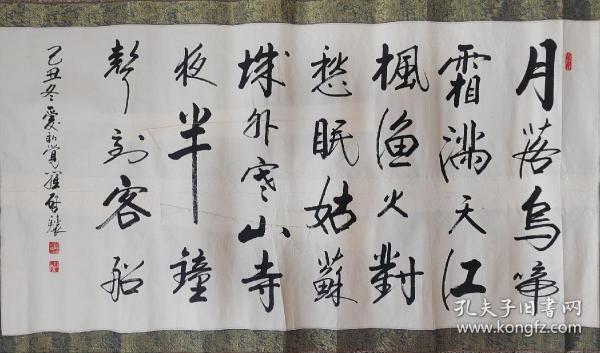 月落乌啼
霜满天江
楓渔火對
愁眠姑蘇
城外寒山寺
夜半鐘
聲到客船
己丑冬愛新覺羅啟驤
孔夫子旧書网
www.kongfz.com